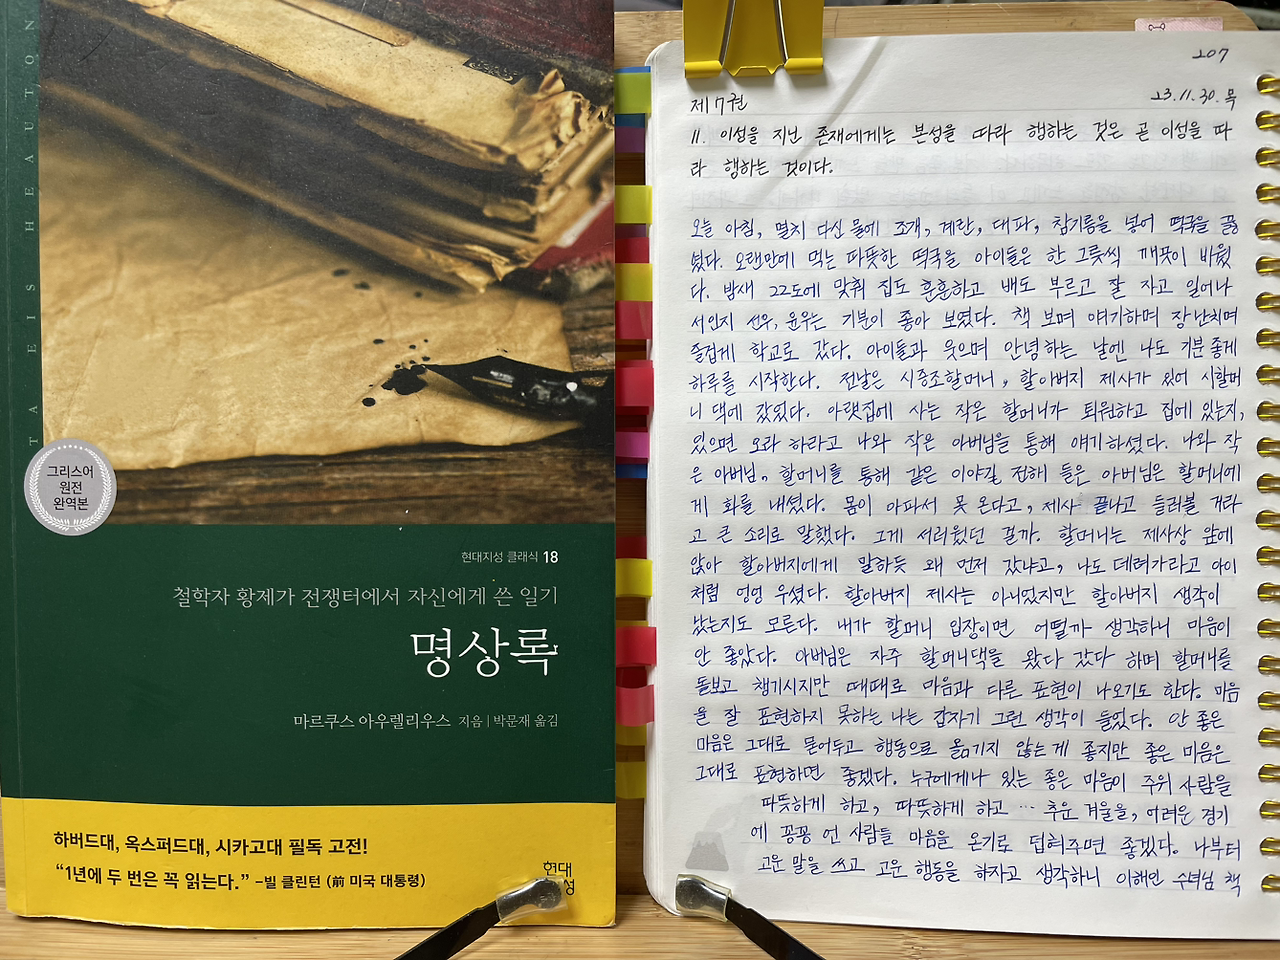 TA EIS HEAUTON
그리스어
원전
완역본
현대지성 클래식 18
철학자 황제가 전쟁터에서 자신에게 쓴 일기
명상록
마르쿠스 아우렐리우스 지음 | 박문재 옮김
하버드대, 옥스퍼드대, 시카고대 필독 고전!
“1년에 두 번은 꼭 읽는다.” –빌 클린턴 (前 미국 대통령)
현대
지성
207
제7권
23.11.30.목
11. 이성을 지닌 존재에게는 본성을 따라 행하는 것은 곧 이성을 따
라 행하는 것이다.
오늘 아침, 멸치 다신 물에 조개, 계란, 대파, 참기름을 넣어 떡국을 끓
였다. 오랜만에 먹는 따뜻한 떡국을 아이들은 한 그릇씩 깨끗이 비웠
다. 밤새 22도에 맞춰 집도 훈훈하고 배도 부르고 잘 자고 일어나
서인지 선우, 윤우는 기분이 좋아 보였다. 책 보며 얘기하며 장난치며
즐겁게 학교로 갔다. 아이들과 웃으며 안녕하는 날엔 나도 기분 좋게
하루를 시작한다. 전날은 시증조할머니, 할아버지 제사가 있어 시할머
니 댁에 갔었다. 아랫집에 사는 작은 할머니가 퇴원하고 집에 있는지,
있으면 오라 하라고 나와 작은 아버님을 통해 얘기하셨다. 나와 작
은 아버님, 할머니를 통해 같은 이야길 전해 들은 아버님은 할머니에
게 화를 내셨다. 몸이 아파서 못 온다고, 제사 끝나고 들러볼 거라
고 큰 소리로 말했다. 그게 서러웠던 걸까. 할머니는 제사상 앞에
앉아 할아버지에게 말하듯 왜 먼저 갔냐고, 나도 데려가라고 아이
처럼 엉엉 우셨다. 할아버지 제사는 아니었지만 할아버지 생각이
났는지도 모른다. 내가 할머니 입장이면 어떨까 생각하니 마음이
안 좋았다. 아버님은 자주 할머니댁을 왔다 갔다 하며 할머니를
돌보고 챙기시지만 때때로 마음과 다른 표현이 나오기도 한다. 마음
을 잘 표현하지 못하는 나는 갑자기 그런 생각이 들었다. 안 좋은
마음은 그대로 묻어두고 행동으로 옮기지 않는 게 좋지만 좋은 마음은
그대로 표현하면 좋겠다. 누구에게나 있는 좋은 마음이 주위 사람을
따뜻하게 하고, 따뜻하게 하고 … 추운 겨울을, 어려운 경기
에 꽁꽁 언 사람들 마음을 온기로 덥혀주면 좋겠다. 나부터
고운 말을 쓰고 고운 행동을 하자고 생각하니 이해인 수녀님 책